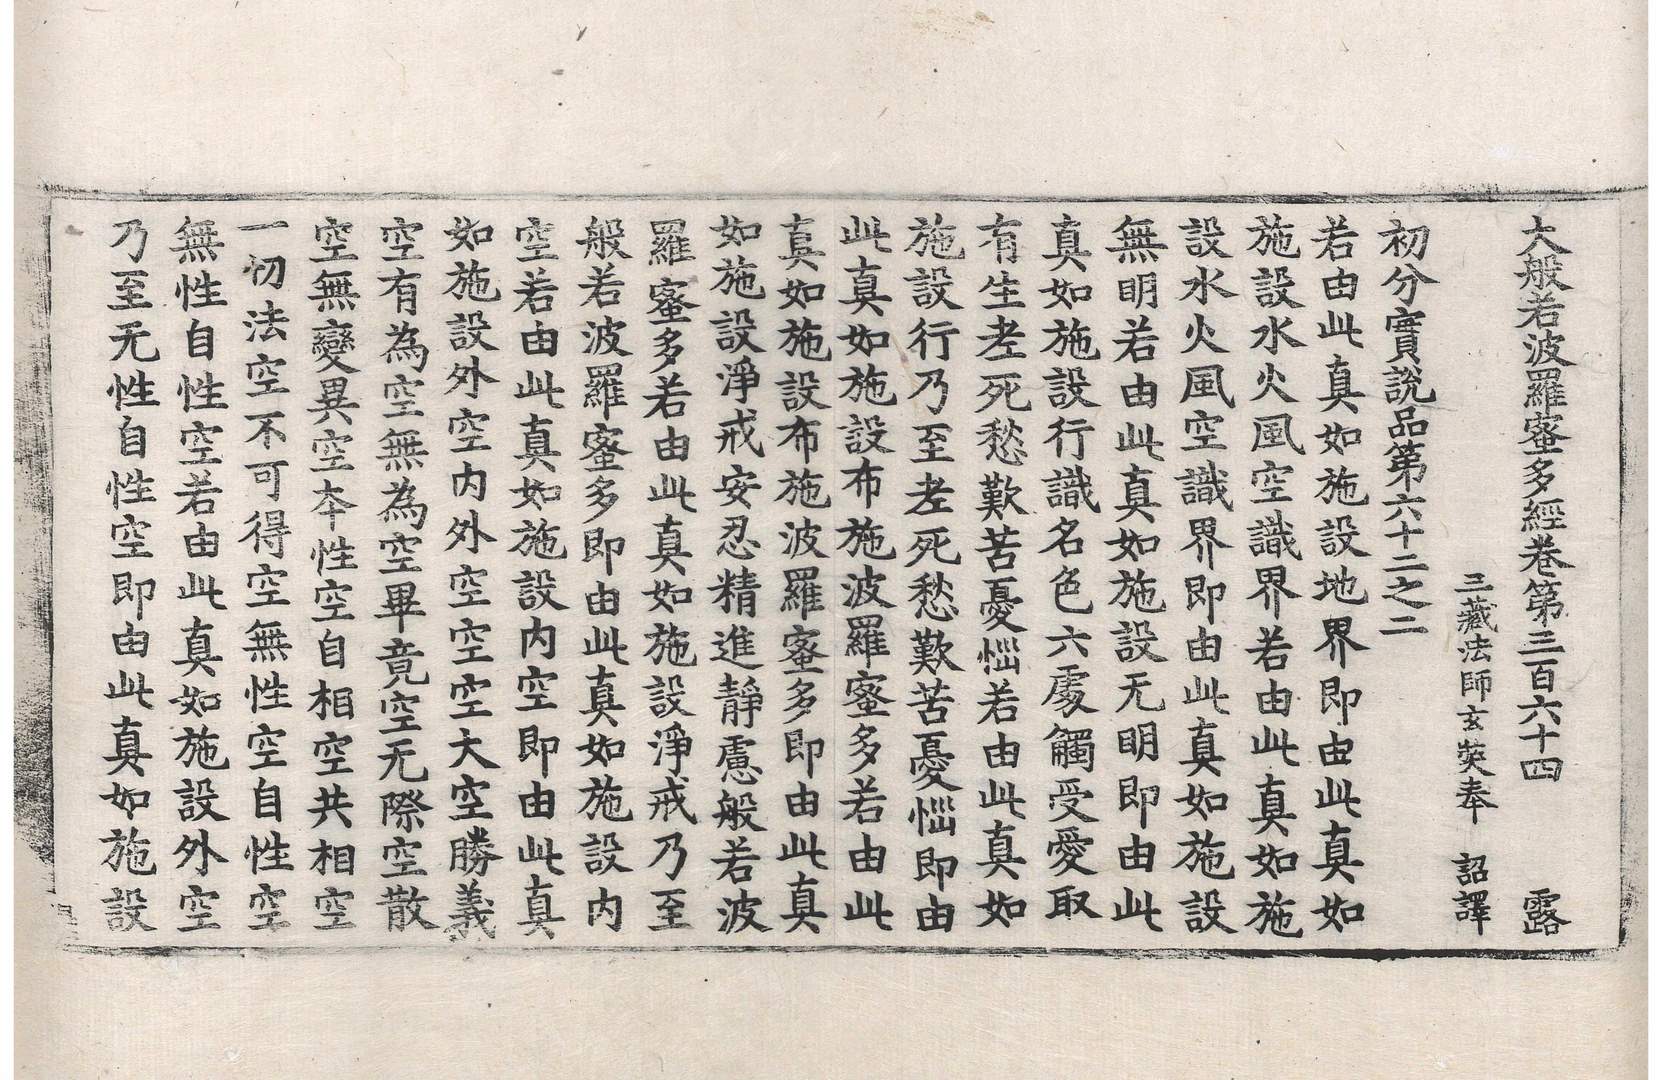 大般若波羅蜜多經卷第三百六十四　露
三藏法師玄奘奉　詔譯
初分實說品第六十二之二
若由此真如施設地界即由此真如
施設水火風空識界若由此真如施
設水火風空識界即由此真如施設
無明若由此真如施設无明即由此
真如施設行識名色六處觸受愛取
有生老死愁歎苦憂惱若由此真如
施設行乃至老死愁歎苦憂惱即由
此真如施設布施波羅蜜多若由此
真如施設布施波羅蜜多即由此真
如施設淨戒安忍精進靜慮般若波
羅蜜多若由此真如施設淨戒乃至
般若波羅蜜多即由此真如施設內
空若由此真如施設內空即由此真
如施設外空內外空空空大空勝義
空有為空無為空畢竟空无際空散
空無變異空本性空自相空共相空
一切法空不可得空無性空自性空
無性自性空若由此真如施設外空
乃至无性自性空即由此真如施設